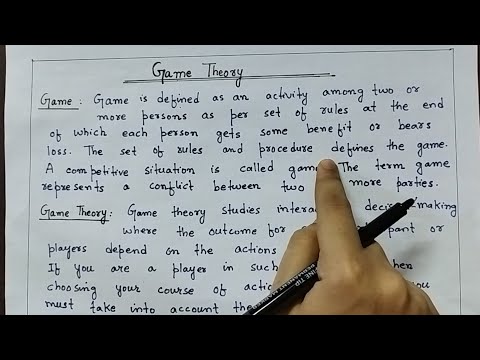 Game Theory
Game : Game is defined as an activity among two or
more persons as per set of rules at the end
of which each person gets some benefit or bears
loss. The set of rules and procedure defines the game.
A competitive situation is called game. The term game
represents a conflict between two more parties.
Game Theory: Game theory studies decision making
where the outcome for or
players depend on the actions
If you are a player in such
choosing your course of you
must take into account
FINE TIP